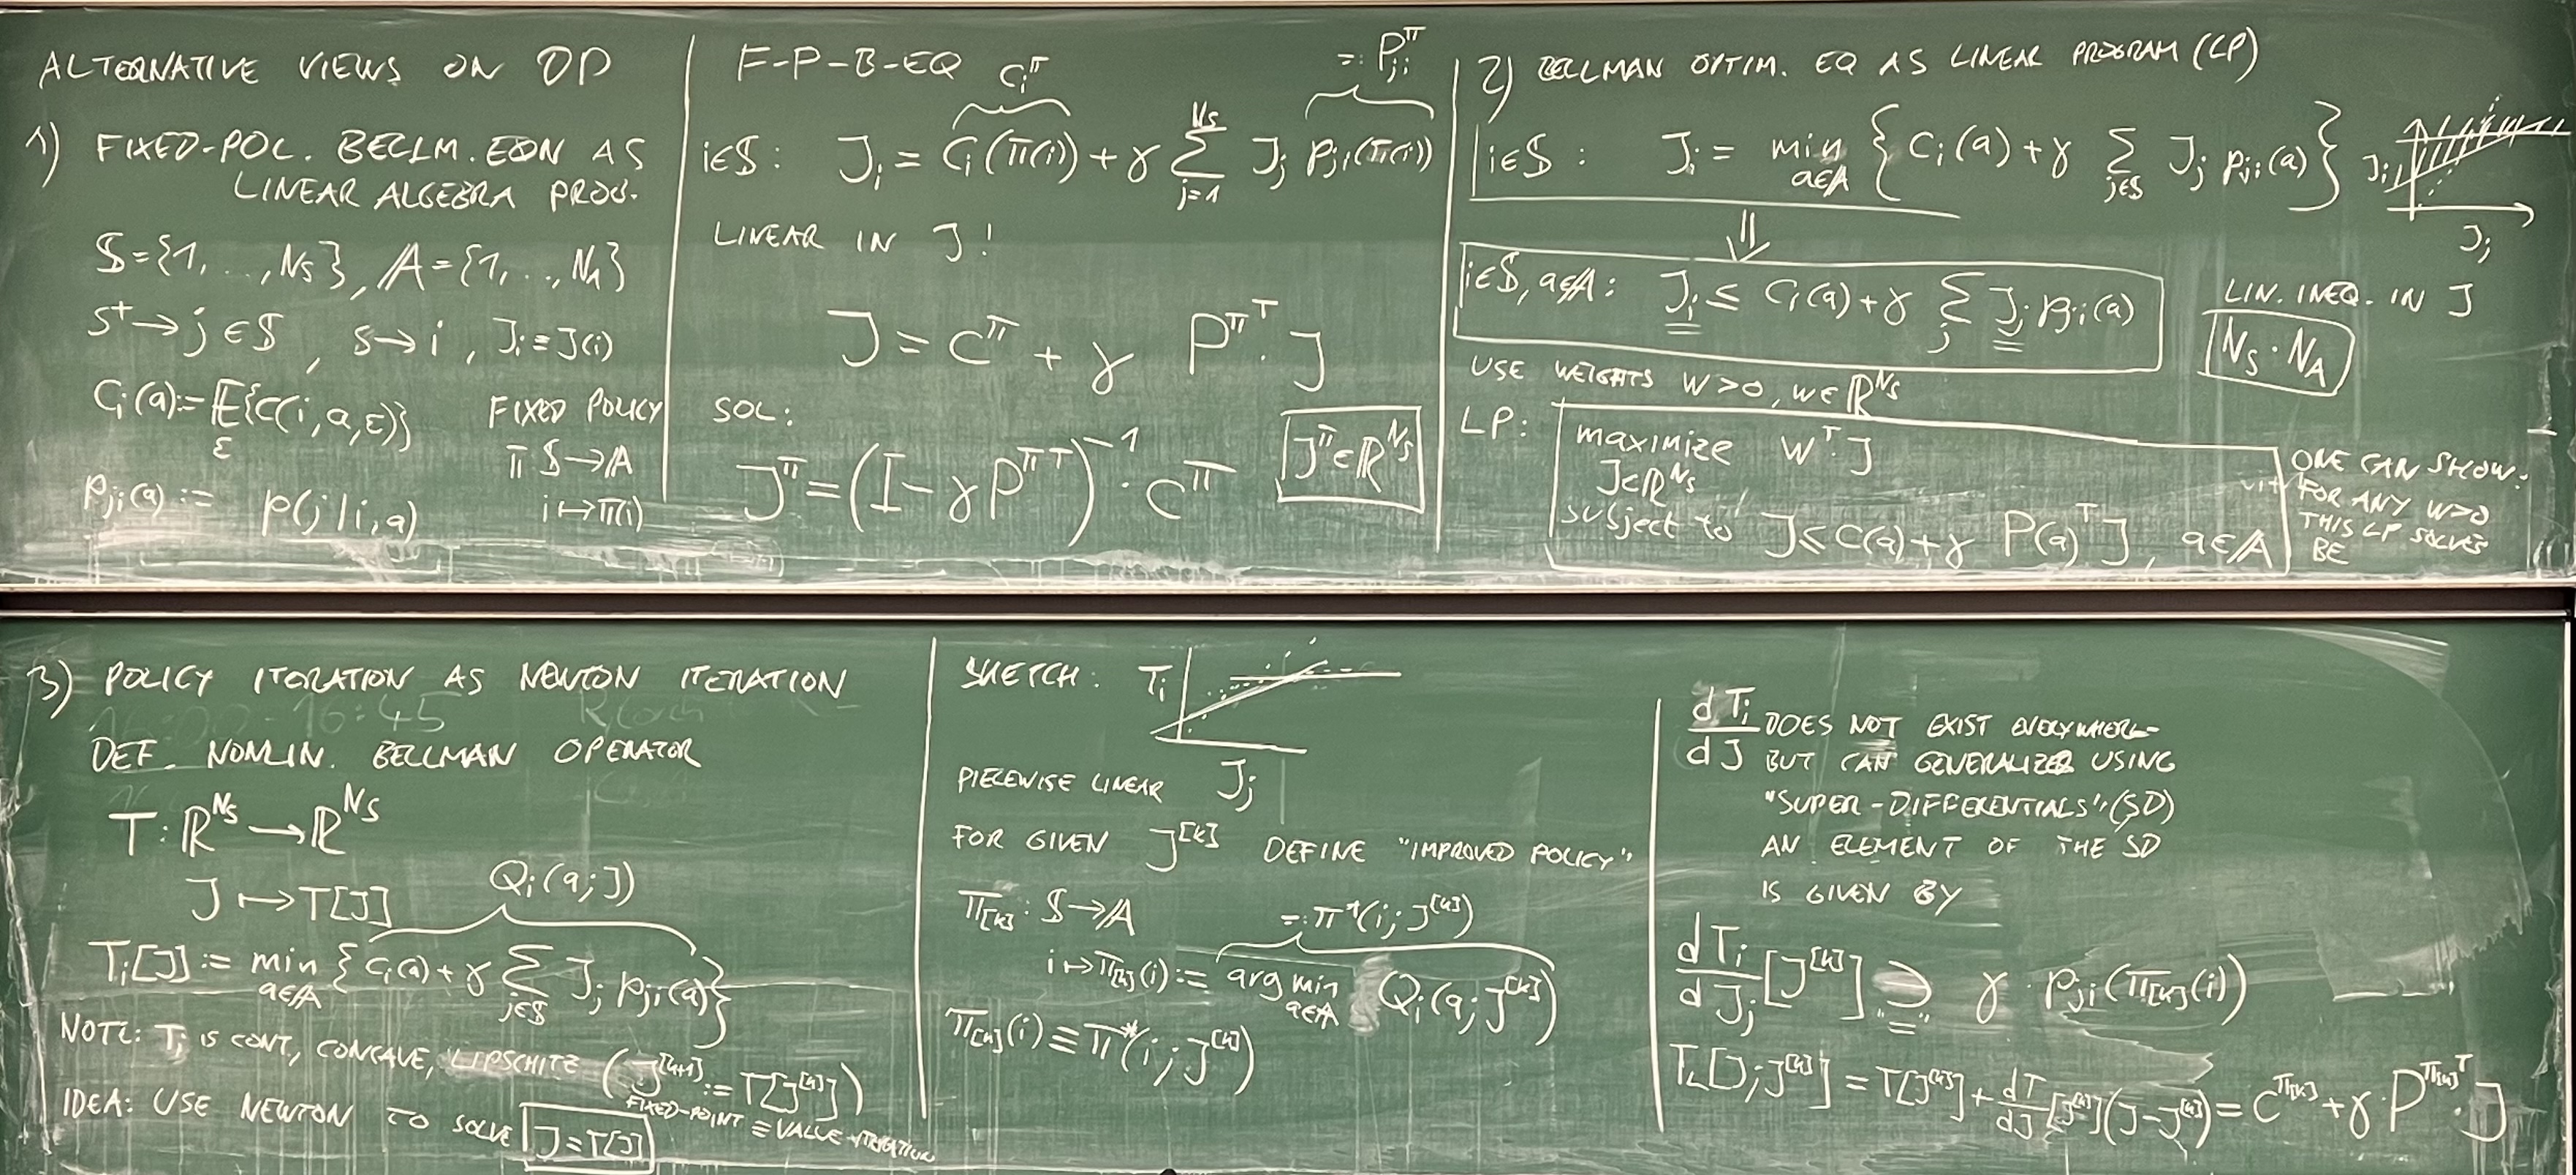 ALTERNATIVE VIEWS ON DP
1) FIXED-POL. BELLM. EQN AS
LINEAR ALGEBRA PROB.
𝕊={1,...,N_S}, 𝔸={1,...,N_A}
s⁺→j∈𝕊, s→i, J_i≡J(i)
C_i(a):=𝔼_ε{c(i,a,ε)}
p_ji(a):= p(j|i,a)
FIXED POLICY
π 𝕊→𝔸
i↦π(i)
F-P-B-EQ
i∈𝕊: J_i = C_i(π(i)) + γ ∑_{j=1}^{N_S} J_j p_ji(π(i))
C_i^π
=: P_ji^π
LINEAR IN J!
J = C^π + γ P^{π^T}·J
SOL:
J^π = (I-γP^{πT})^{-1}·C^π
J^π∈ℝ^{N_S}
2) BELLMAN OPTIM. EQ AS LINEAR PROGRAM (LP)
i∈𝕊: J_i = min_{a∈𝔸} {C_i(a)+γ ∑_{j∈𝕊} J_j p_ji(a)}
J_i
J_j
⇓
i∈𝕊, a∈𝔸: J_i ≤ C_i(a)+γ ∑_j J_j p_ji(a)
LIN. INEQ. IN J
N_S·N_A
USE WEIGHTS W>0, W∈ℝ^{N_S}
LP:
maximize W^T·J
J∈ℝ^{N_S}
subject to J≤C(a)+γ P(a)^T J, a∈𝔸
ONE CAN SHOW:
FOR ANY W>0
THIS LP SOLVES
BE
3) POLICY ITERATION AS NEWTON ITERATION
DEF. NONLIN. BELLMAN OPERATOR
T: ℝ^{N_S}→ℝ^{N_S}
J↦T[J]
Q_i(a;J)
T_i[J] := min_{a∈𝔸} {C_i(a)+γ ∑_{j∈𝕊} J_j p_ji(a)}
NOTE: T_i IS CONT., CONCAVE, LIPSCHITZ (J^{[k+1]}:=T[J^{[k]}])
FIXED-POINT ≡ VALUE ITERATION
IDEA: USE NEWTON TO SOLVE J=T[J]
SKETCH: T_i
J_j
PIECEWISE LINEAR
FOR GIVEN J^{[k]} DEFINE "IMPROVED POLICY"
π_{[k]}: 𝕊→𝔸
=: π*(i;J^{[k]})
i↦π_{[k]}(i) := arg min_{a∈𝔸} Q_i(a;J^{[k]})
π_{[k]}(i) ≡ π*(i;J^{[k]})
dT_i/dJ DOES NOT EXIST EVERYWHERE
BUT CAN GENERALIZED USING
"SUPER-DIFFERENTIALS" (SD)
AN ELEMENT OF THE SD
IS GIVEN BY
dT_i/dJ_j [J^{[k]}] ⊇ "=" γ·p_ji(π_{[k]}(i))
T_L[J;J^{[k]}] = T[J^{[k]}]+dT/dJ[J^{[k]}](J-J^{[k]}) = C^{π_{[k]}}+γ·P^{π_{[k]}^T}·J